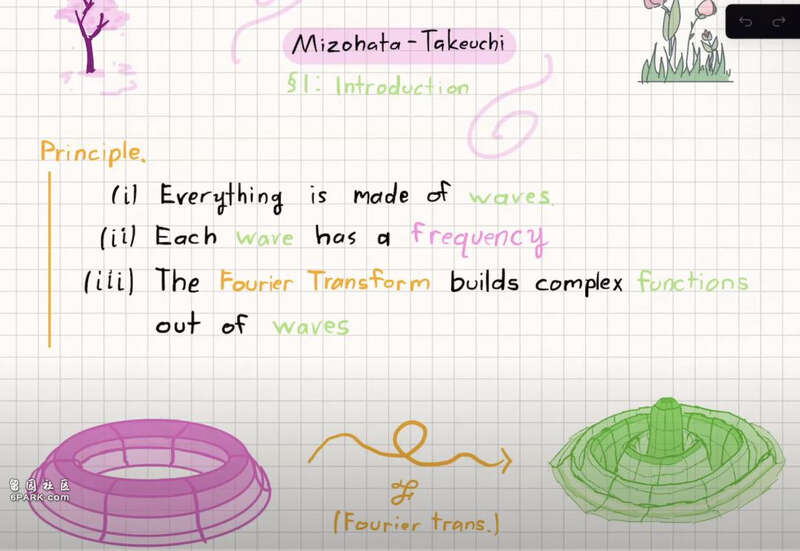 Mizohata-Takeuchi
§1: Introduction
Principle.
(i) Everything is made of waves.
(ii) Each wave has a frequency
(iii) The Fourier Transform builds complex functions
out of waves
(Fourier trans.)
留园社区
6PARK.COM